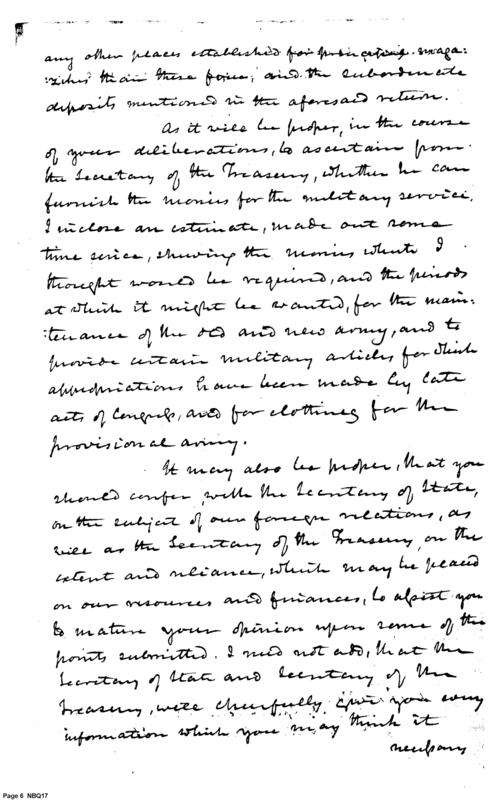 any other places established for providing maga:
zines than these four, and the subordinate
deposits mentioned in the aforesaid return.
As it will be proper, in the course
of your deliberations, to ascertain from
the Secretary of the Treasury, whether he can
furnish the monies for the military service,
I inclose an estimate, made out some
time since, shewing the monies which I
thought would be required, and the periods
at which it might be wanted, for the main:
:tenance of the old and new army, and to
provide certain military articles for which
appropriations have been made by late
acts of Congress, and for clothing for the
provisional army.
It may also be proper, that you
should confer with the Secretary of State,
on the subject of our foreign relations, as
well as the Secretary of the Treasury, on the
extent and reliance, which may be placed
on our resources and finances, to assist you
to mature your opinion upon some of the
points submitted. I need not add, that the
Secretary of State and Secretary of the
Treasury, will cheerfully give you every
information which you may think it
necessary
Page 6 NBQ17